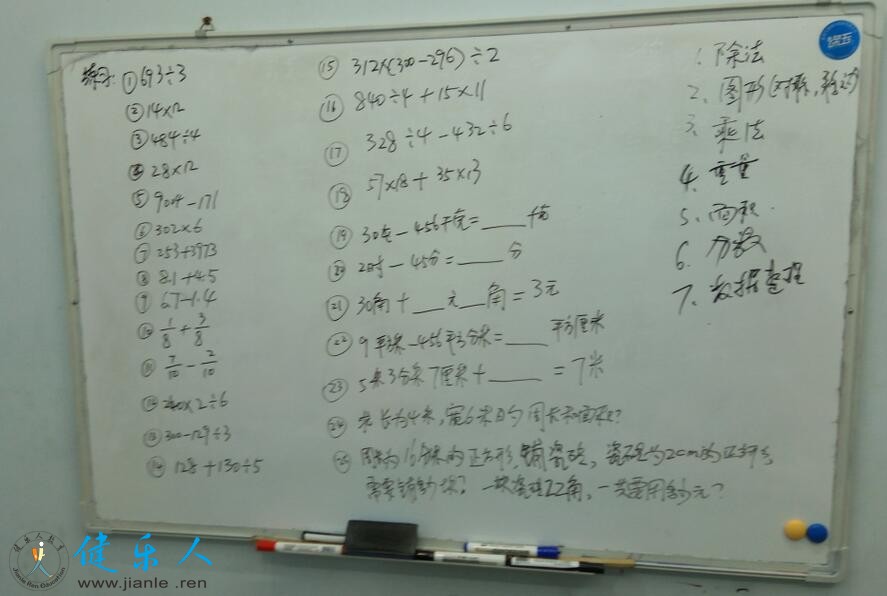 练习: ① 693÷3
② 14×12
③ 484÷4
④ 28×12
⑤ 904-171
⑥ 302×6
⑦ 253+3973
⑧ 8.1+4.5
⑨ 6.7-1.4
⑩ 1/8 + 3/8
⑪ 7/10 - 2/10
⑫ 240×2÷6
⑬ 300-129÷3
⑭ 128+130÷5
⑮ 312×(300-296)÷2
⑯ 840÷4+15×11
⑰ 328÷4-432÷6
⑱ 57×18+35×13
⑲ 30克-456千克=___千克
⑳ 2时-45分=___分
㉑ 30角+__元__角=3元
㉒ 9平方米-456平方分米=___平方厘米
㉓ 5米3分米7厘米+___=7米
㉔ 求长为4米,宽6米的周长和面积?
㉕ 周长为16分米的正方形,铺瓷砖,瓷砖是为2cm的正方形
需要铺多少块?一块瓷砖22角,一共要用多少元?
1. 除法
2、图形(对称,移动)
3、乘法
4. 重量
5. 面积
6. 分数
7. 数据整理
健乐人教育
Jianle Ren Education
健乐人
www.jianle.ren